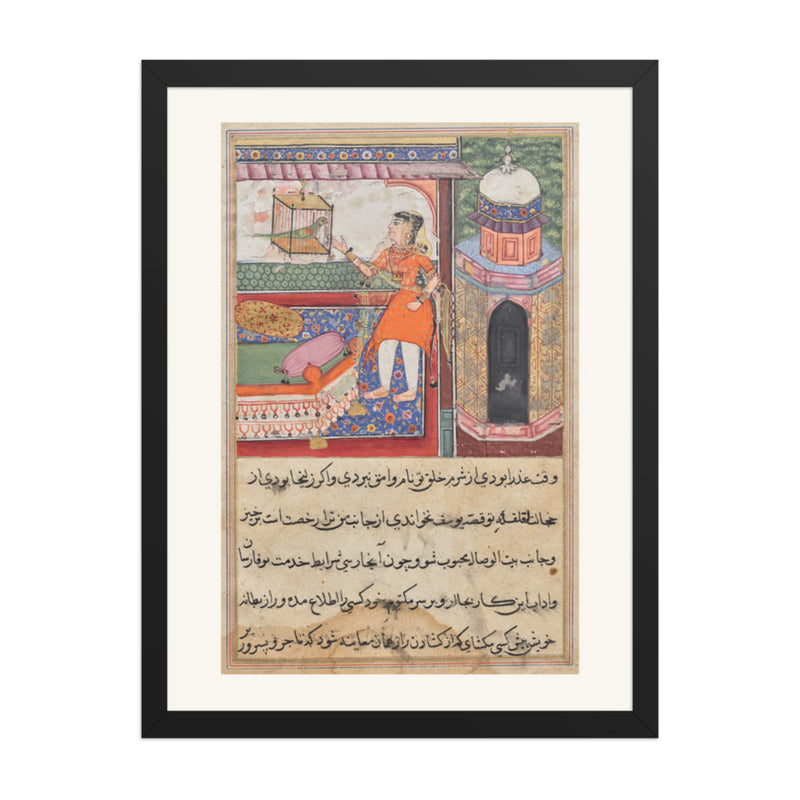 وقت عذرا بودي از شرم خلق تو نام وامق نبردي و اكر زليخا بودي از
خجالت تو قصه يوسف نخواندي از جانب من ترا رخصت است برخيز
و جانب بيت الوصال محبوب شو و چون آنجا رسي شرايط خدمت بوفا رسان
و اداب اين كار بجا ار و بر سر مكتوم خود كسي را اطلاع مده و راز بطانه
خويش پيش كسي مكشاي كه از كشادن راز همان معاينه شود كه تاجر و پسر را